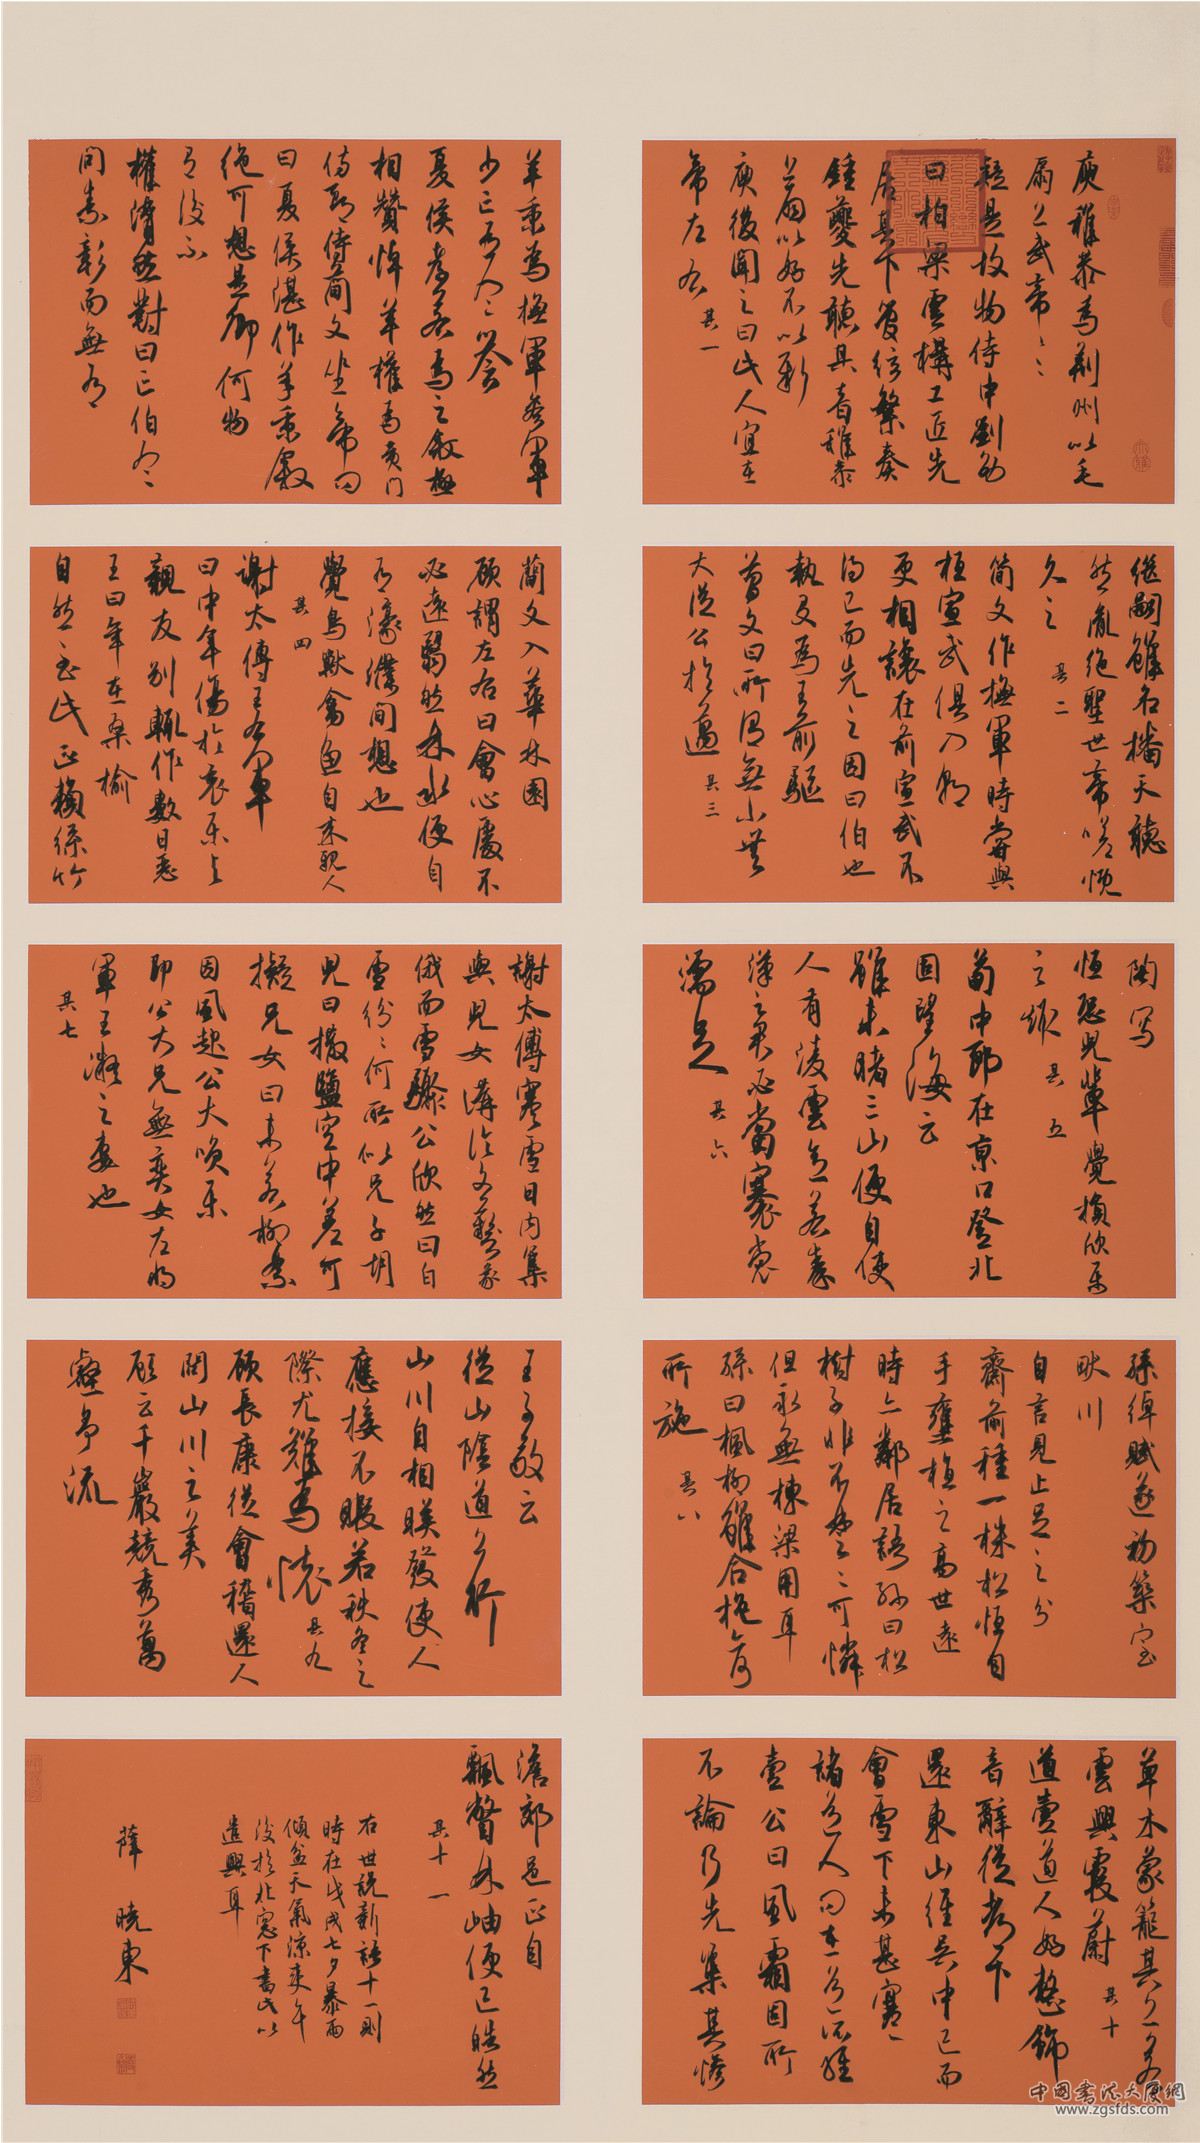 庾稚恭為荊州以毛
扇上武帝〻〻
疑是故物侍中劉劭
曰柏梁雲構工匠先
居其下管弦繁奏
鍾夔先聽其音稚恭
上扇以好不以新
庾後聞之曰此人宜在
帝左右 其一
羊秉為撫軍參軍
少亡有令
夏侯孝若為之敘極
相贊悼羊權為黃門
侍郎侍簡文坐帝問
曰夏侯湛作羊秉敘
絕可想是卿何物
有後不
權潸然對曰亡伯令〻
問夙彰而無有
繼嗣雖名播天聽
然胤絕聖世帝嗟慨
久之 其二
簡文作撫軍時嘗與
桓宣武俱入朝
更相讓在前宣武不
得已而先之因曰伯也
執殳為王前驅
簡文曰所謂無小無
大從公於邁 其三
簡文入華林園
顧謂左右曰會心處不
必遠翳然林水便自
有濠濮間想也
覺鳥獸禽魚自來親人
其四
謝太傅王右軍
曰中年傷於哀樂與
親友別輒作數日惡
王曰年在桑榆
自然至此正賴絲竹
陶寫
恆恐兒輩覺損欣樂
之趣 其五
荀中郎在京口登北
固望海云
雖未睹三山便自使
人有凌雲意若秦
漢之君必當褰裳
濡足 其六
謝太傅寒雪日內集
與兒女講論文義
俄而雪驟公欣然曰白
雪紛〻何所似兄子胡
兒曰撒鹽空中差可
擬兄女曰未若柳絮
因風起公大笑樂
即公大兄無奕女左將
軍王凝之妻也
其七
孫綽賦遂初築室
畎川
自言見止足之分
齋前種一株松恒自
手壅植之高世遠
時亦鄰居語孫曰松
樹子非不楚〻可憐
但永無棟梁用耳
孫曰楓柳雖合抱亦何
所施 其八
王子敬云
從山陰道上行
山川自相映發使人
應接不暇若秋冬之
際尤難為懷 其九
顧長康從會稽還人
問山川之美
顧云千巖競秀萬
壑爭流
草木蒙籠其上若
雲興霞蔚 其十
道壹道人好整飾
音辭從都下
還東山經吳中已而
會雪下未甚寒〻
諸道人問在道所經
壹公曰風霜固所
不論乃先集其慘
澹郊邑正自
飄瞥林岫便已皓然
其十一
右世說新語十一則
時在戊戌七夕暴雨
傾盆天氣涼爽午
後於北窗下書此以
遣興耳
薛曉東
中国书法大厦网
www.zgsfds.com